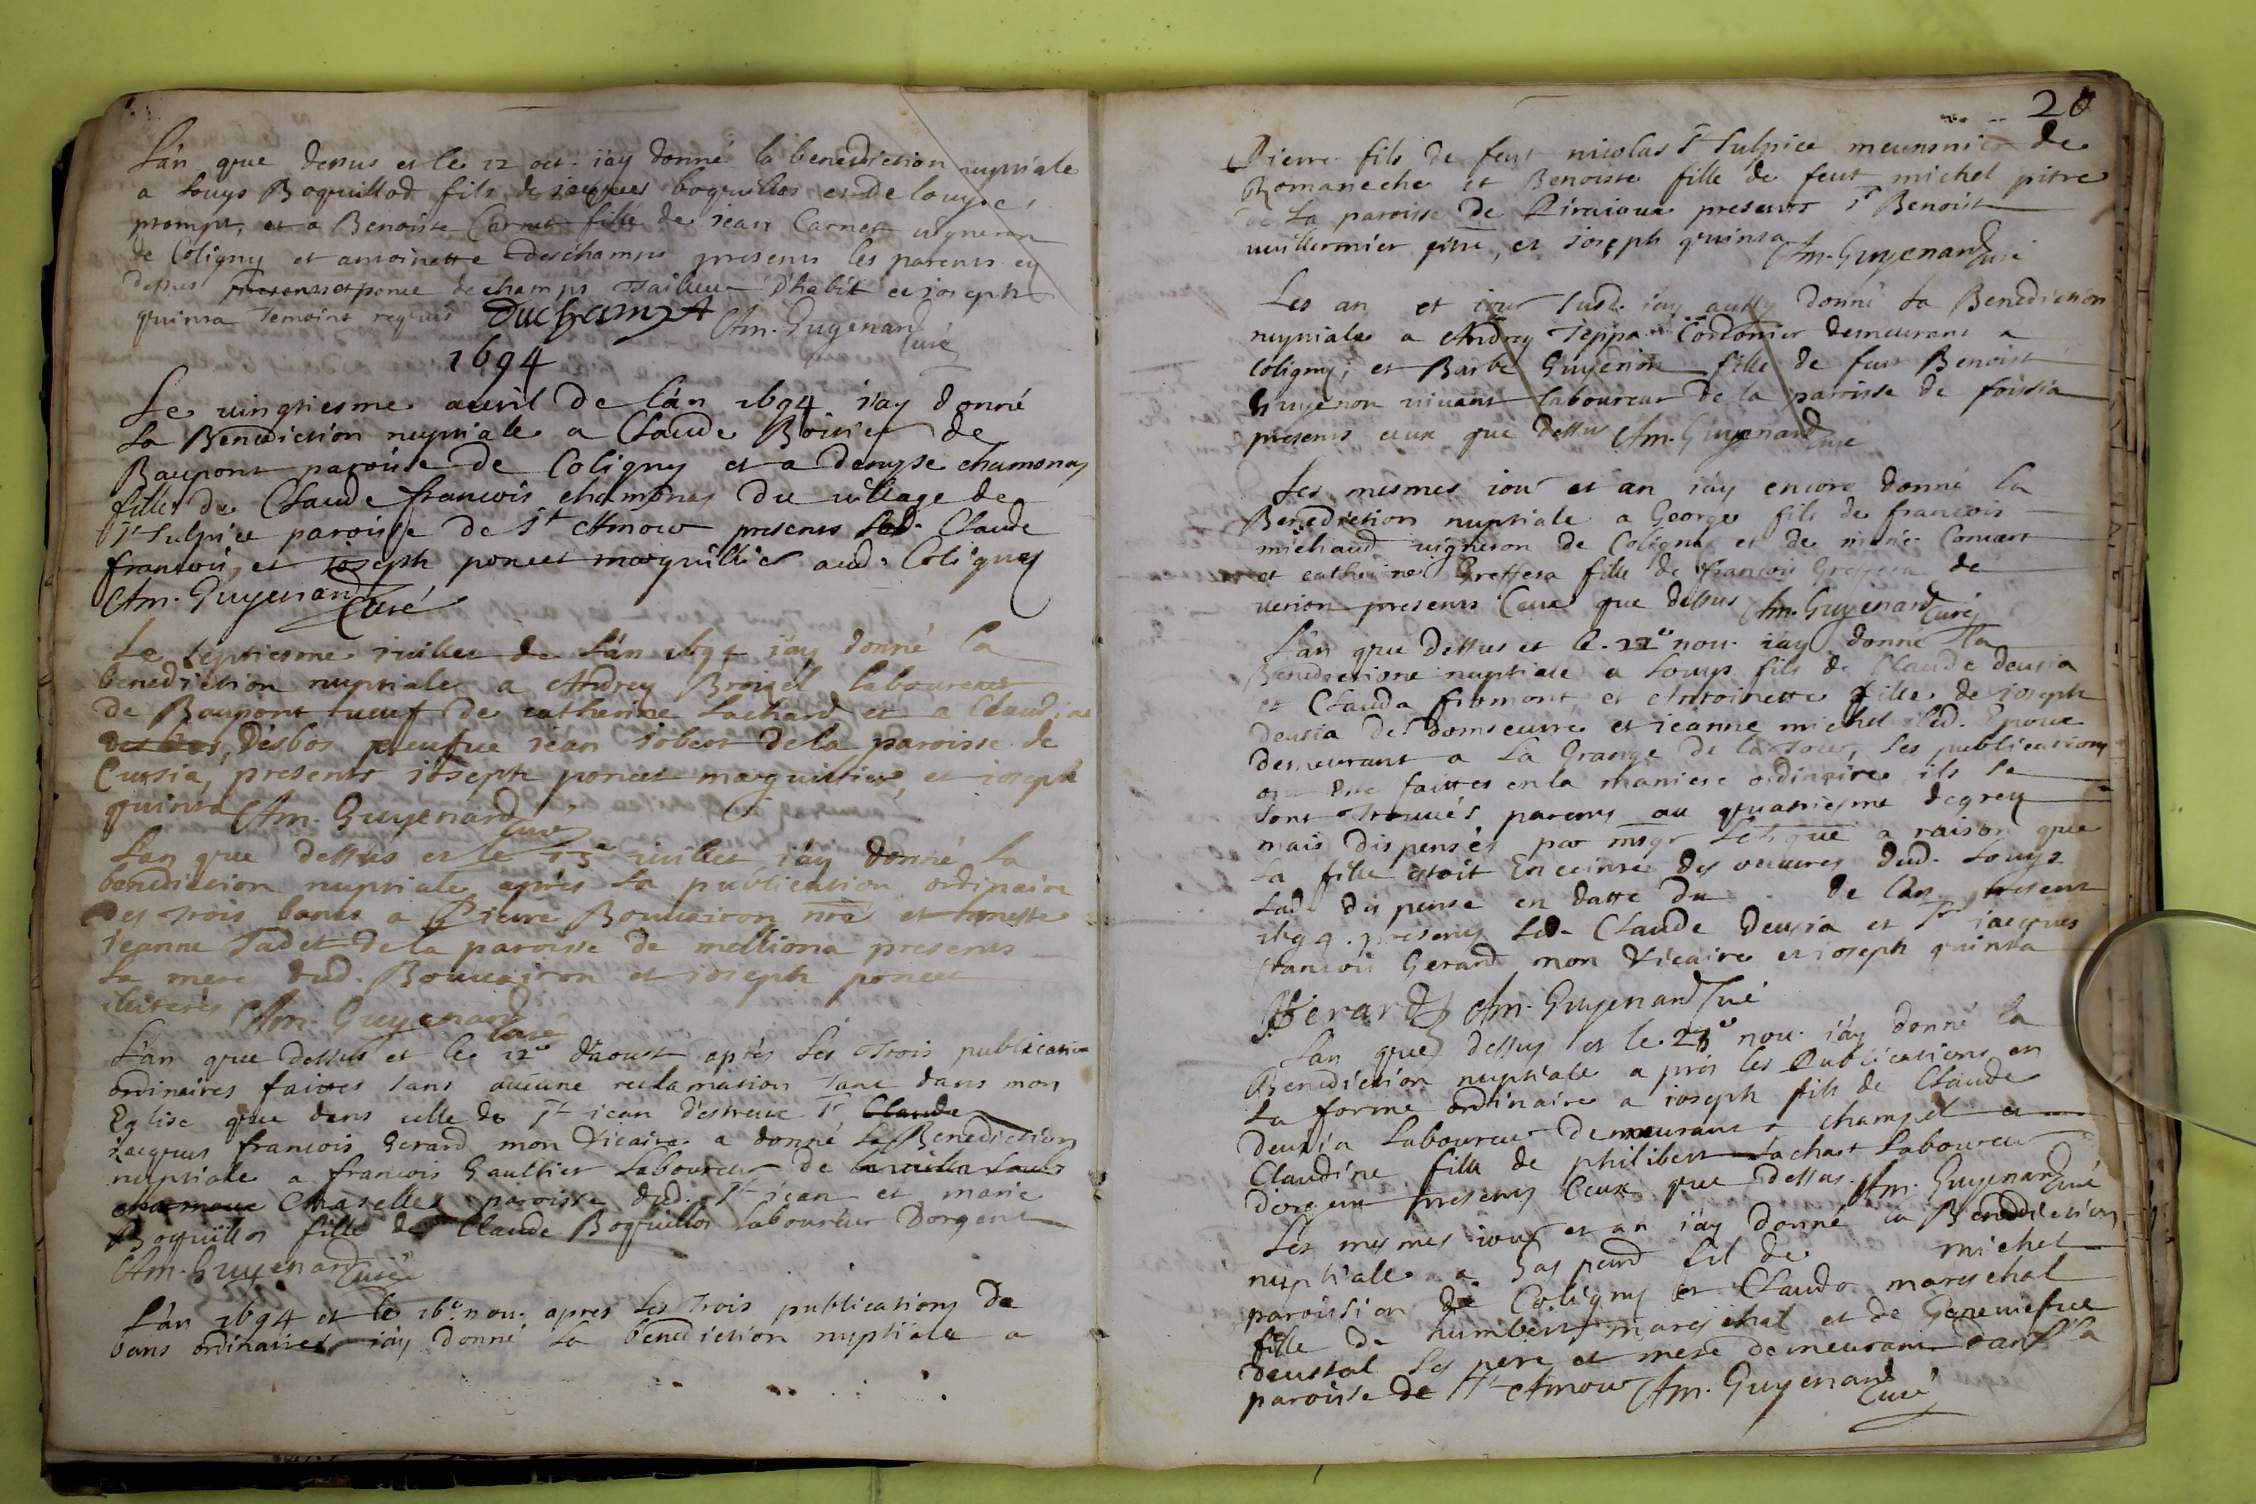 L'an que dessus et le 12 oct. i'ay donné la benediction nuptiale
a Louys Boquillod fils de iaques boquillos et de louyse
prompt, et a Benoiste Carnet fille de iean Carnet uigneron
de Coligny et antoinette deschamps presents les parents cy
dessus ponce dechamps Tailleur D'habit et ioseph
quinsa temoins requis Duchampt Am. Guyenard Curé
1694
Le uingtiesme auril de l'an 1694 i'ay donné
La Benediction nuptiale a Claude Boiuier de
Baupont paroisse de Coligny et a denyse chamonay
fille de Claude francois chamonay du uillage de
St Sulpice paroisse de St Amour presents led. Claude
francois, et ioseph poncet marguillier aud. Coligny
Am. Guyenard Curé
Le septiesme iuillet de l'an 1694 i'ay donné la
benediction nuptiale a Andrey Broisel laboureur
de Baupont ueuf de catherine Lachard et a Claudine
desbos ueufue iean iobert de la paroisse de
Cursia, presents ioseph poncet marguillier, et ioseph
quinsa Am. Guyenard Curé
L'an que dessus et le 13e iuillet i'ay donné la
benediction nuptiale apres la publication ordinaire
des trois bancs a Pierre Bouuairon nre et honeste
ieanne Tadet de la paroisse de melliona presents
la mere dud. Bouuairon et ioseph poncet
illiterés Am. Guyenard Curé
L'an que dessus et le 12e d'aoust apres les trois publication
ordinaires faittes sans aucune reclamation tant dans mon
Eglise que dans celle de St iean d'estreux Sr Claude
iacques francois Gerard mon Vicaire a donné la Benediction
nuptiale a francois Gaultier Laboureur de
Chaselles paroisse dud. St iean et marie
Boquillos fille de Claude Boquillos laboureur Dorgent
Am. Guyenard Curé
L'an 1694 et le 16e nou. apres les trois publications de
bans ordinaires i'ay donné la benediction nuptiale a
20
Pierre fils de feut nicolas St Sulpice meunnier de
Romaneche et Benoiste fille de feut michel pitre
de la paroisse de presents Sr Benoist
uuillermier pitre, et ioseph quinsa Am. Guyenard Curé
Les an et iour susd. i'ay aussy donné la Benediction
nuptiale a Andrey Teppa Cordonier demeurant a
Coligny, et Barbe Guyenon fille de feut Benoist
Guyenon uiuant laboureur de la paroisse de foissia
presents ceux que dessus Am. Guyenard Curé
Les mesmes iour et an i'ay encore donné la
Benediction nuptiale a George fils de francois
michaud uigneron de Coligny et de Conuert
et catherine Greffera fille de francois Greffera de
uerion presents Ceux que dessus Am. Guyenard Curé
L'an que dessus et le 22e nou. i'ay donné la
Benedictione nuptiale a Louys fils de Claude deusia
et Clauda fromont, et Antoinette fille de ioseph
deusia de domseure et ieanne michel led. Epoux
demeurant a La Grange de la tour, les publications
ont esté faittes en la maniere ordinaire ils se
sont trouués parents au quatriesme degrey
mais dispensés par msgr a raison que
la fille estoit Enceinte des oeuures dud. Louys
lad. dispense en datte du de l'an present
1694. presents led. Claude deusia et Sr iacques
francois Gerard mon Vicaire et ioseph quinsa
JfGerard Am. Guyenard Curé
L'an que dessus et le 23e nou. i'ay donné la
Benediction nuptiale apres les Publications en
la forme ordinaire a ioseph fils de Claude
deusia Laboureur demeurant a champel et
Claudine fille de philibert Lachast laboureur
dorgent presents Ceux que dessus. Am. Guyenard Curé
Les mesmes iour et an i'ay donné la Benediction
nuptialle a Gaspard fil de michel
paroission de Coligny et Clauda mareschal
fille de humbert mareschal et de Geneuiefue
deustal ses pere et mere demeurant dans la
paroisse de St Amour Am. Guyenard Curé